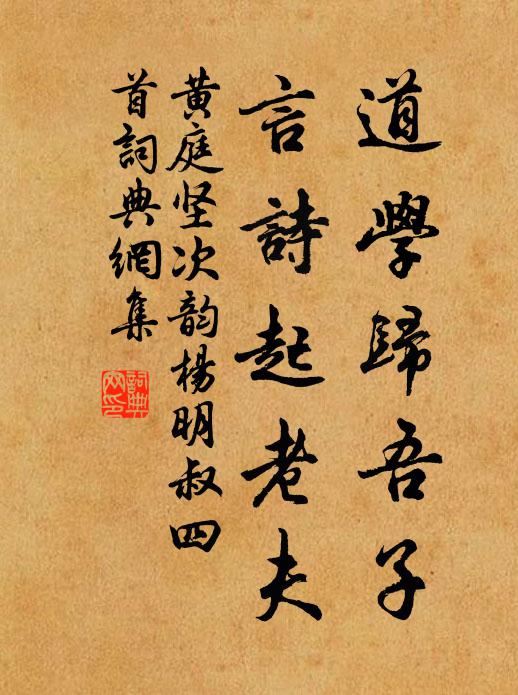 道學歸吾子
言詩起老夫
黄庭坚次韵楊明叔四
首詞典網集
詞典
网印